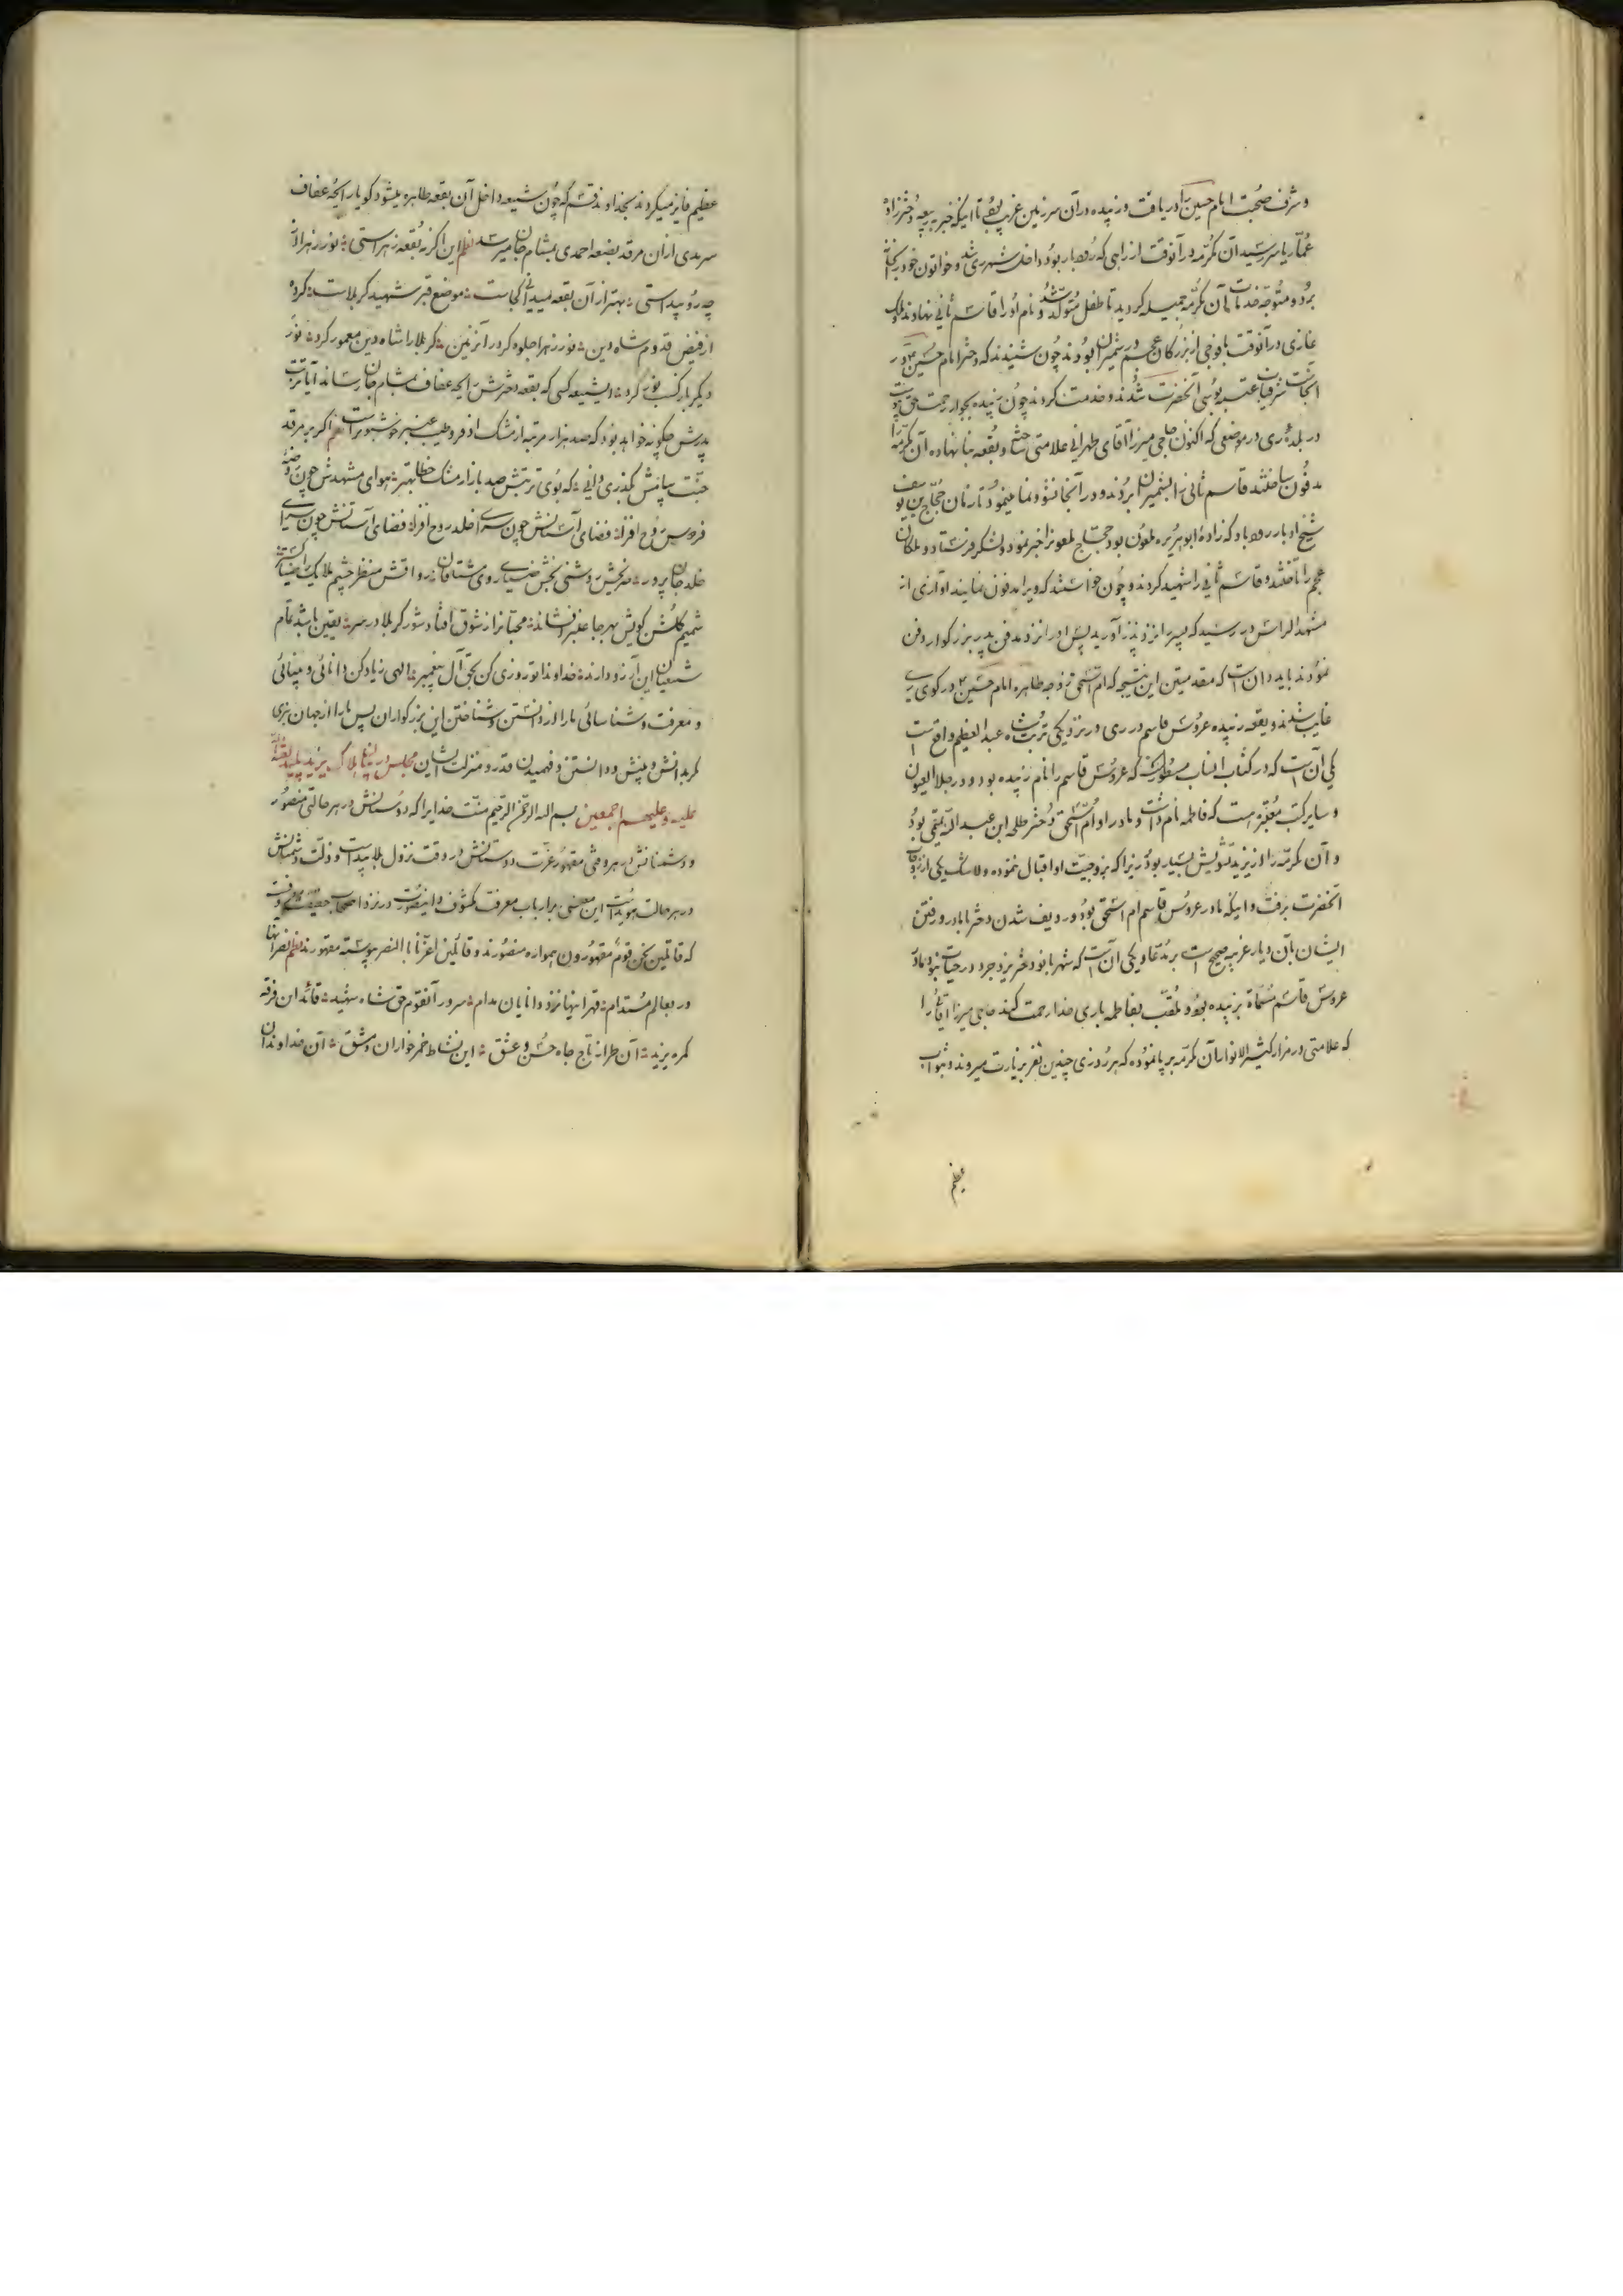 و شرف صحبت امام حسین را دریافت و زبیده در آن سرزمین غریب بود تا اینکه خبر بربیعه دختر زاده
عمار یاسر رسید آن مکرمه در آنوقت از راهی که رودبار بود داخل شهر ری شد و خواتون خود را بخانه
برد و متوجه خدمات آن مکرمه جمیله کردید تا طفل متولد شد و نام او را قاسم ثانی نهادند ملک
غازی در آنوقت با فوجی از بزرکان عجم در شمیران بودند چون شنیدند که دختر امام حسین در
آنجاست شرفیاب عتبه بوسی آنحضرت شدند و خدمت کردند چون زبیده بجوار رحمت حق پیوست
در بلده ری در موضعی که اکنون حاجی میرزا آقای طهرانی علامتی و بقعه بنا نهاده آن مکرمه را
مدفون ساختند قاسم ثانی را بشمیران بردند و در آنجا نشو و نما مینمود تا زمان حجاج بن یوسف
شیخ او بار رودباد که زاده ابو هریره ملعون بود حجاج ملعون را خبر نمود و لشکر فرستاد و ملکان
عجم را تاختند و قاسم ثانی را شهید کردند و چون خواستند که ویرا مدفون نمایند آوازی از
مشهد الراس در رسید که پسر را نزد پدر آورید پس او را نزد مدفن پدر بزرکوار دفن
نمودند باید دانست که مقدمتین این نتیجه که ام اسحق زوجه طاهره امام حسین در کوی ری
غایب شدند و بقعه زبیده عروس قاسم در ری در نزدیکی تربت شاه عبدالعظیم واقعست
یکی آنست که در کتاب انساب مسطور است که عروس قاسم را نام زبیده بود و در جلاء العیون
و سایر کتب معتبره است که فاطمه نام داشت و مادر او ام اسحق دختر طلحه ابن عبدالله تیمی بود
و آن مکرمه را از یزید تشویش بسیار بود زیرا که بزوجیت او اقبال ننموده و لاشک یکی از زوجات
آنحضرت برفت و اینکه مادر عروس قاسم ام اسحق بود و ردیف شدن دختر با مادر و رفتن
ایشان بآن دیار غریبه صحیح است بر مدعا و یکی آنست که شهربانو دختر یزدجرد در حیات نبود و مادر
عروس قاسم مسماة بزبیده بود و ملقب بفاطمه باری خدا رحمت کند حاجی میرزا آقا را
که علامتی در مزار کثیر الانوار آن مکرمه برپا نموده که هر روزی چندین نفر بزیارت میروند و بثواب
عظیم
عظیم فایز میکردند بخداوند قسم که چون شیعه داخل آن بقعه طاهره میشود کویا رایحه عفاف
سرمدی از آن مرقد بضعه احمدی بمشام جان میرسد نظم این اکر نه بقعه زهراستی نور زهرا از
چه رو پیداستی بهتر از آن بقعه میدانی کجاست موضع قبر شهید کربلاست کرده
از فیض قدوم شاه دین نور زهرا جلوه کرد در آن زمین کربلا را شاه دین معمور کرد نور
دیکر بار کسب نور کرد ایشیعه کسی که بقعه دخترش رایحه عفاف بمشام جان رساند آیا تربت
پدرش چکونه خواهد بود که صد هزار مرتبه از مشک اذفر و طیب عنبر خوشبوتر است نظم اکر بر مرقد
جنت کذری دانی که بوی تربتش صد بار از مشک خطا بهتر هوای مشهدش چون روضه
فردوس روح افزا فضای آستانش چون سرای خلد روح افزا فضای آستانش چون سرای
خلد جان پرور ضریحش روشنی بخش ضیای روی مشتاقان رواقش منظر چشم ملایک
شمیم کلشن کویش بهر جا عنبر افشاند محبانرا ز شوق افتاد شور کربلا در سر یقین باشد تمام
شیعیان این آرزو دارند خداوندا تو روزی کن بحق آل پیغمبر الهی زیاد کن دانائی و بینائی
و معرفت و شناسائی ما را از دانستن و شناختن این بزرکواران پس ما را از جهان ببری
مکر بدانش و بینش و دانستن و فهمیدن قدر و منزلت ایشان مجلس در بیان هلاک یزید پلید لعنة الله
علیه و علیهم اجمعین بسم الله الرحمن الرحیم منت خدایرا که دوستانش در هر حالتی منصور
و دشمنانش در هر وقتی مقهور عزت دوستانش در وقت نزول بلا پیداست و ذلت دشمنانش
در هر حالت هویداست این معنی بر ارباب معرفت مکشوف و اینصورت در نزد اصحاب حقیقت
که قائلین نحن قوم مقهورون همواره منصورند و قائلین اعزنا بالنصر پیوسته مقهورند نظم نصر آنها
در بعالم مستدام قهر اینها نزد دانایان مدام سرور آنقوم حق شاه شهید قائد این فرقه
کمره یزید آن طراز تاج جاه حسن و عشق این نشاط خمر خواران دمشق آن خداوندان